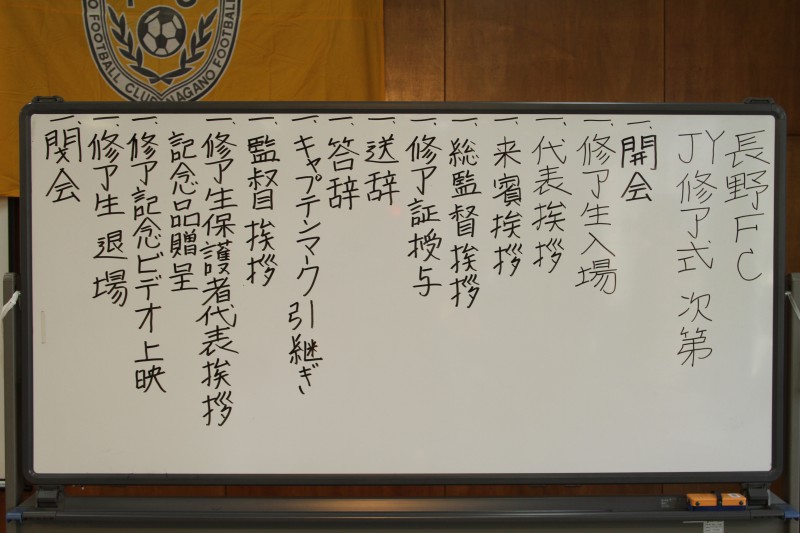 長野FC
JY修了式 次第
一、開会
一、修了生入場
一、代表挨拶
一、来賓挨拶
一、総監督挨拶
一、修了証授与
一、送辞
一、答辞
一、キャプテンマーク引継ぎ
一、監督挨拶
一、修了生保護者代表挨拶
記念品贈呈
一、修了記念ビデオ上映
一、修了生 退場
一、閉会
FOOTBALL CLUB NAGANO FOOTBALL